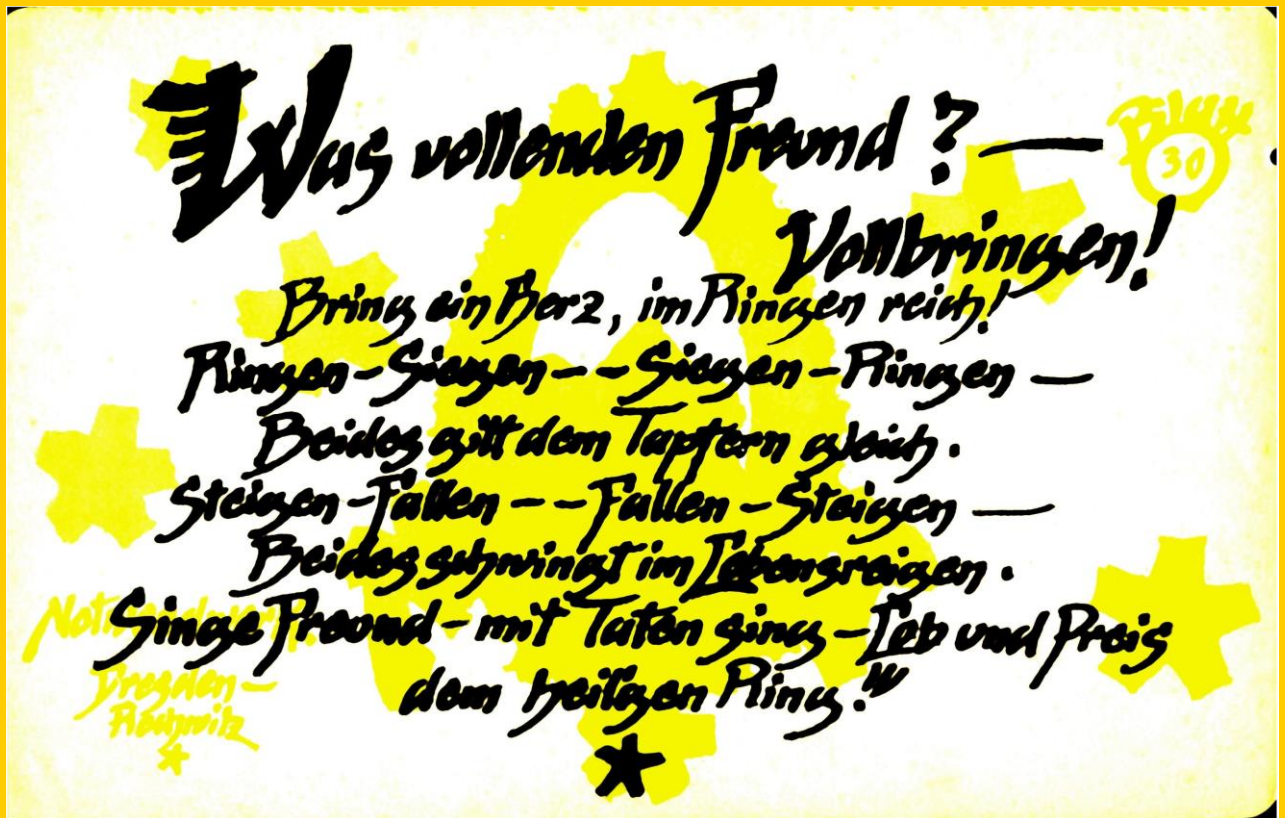 Was vollenden Freund? —
Vollbringen!
Bring ein Herz, im Ringen reich!
Ringen - Siegen - - Siegen - Ringen —
Beides gilt dem Tapfern gleich.
Steigen - Fallen - - Fallen - Steigen —
Beides schwingt im Lebensreigen.
Singe Freund - mit Taten sing - Lob und Preis
dem heilgen Ring!"
Blatt
30
Dresden -